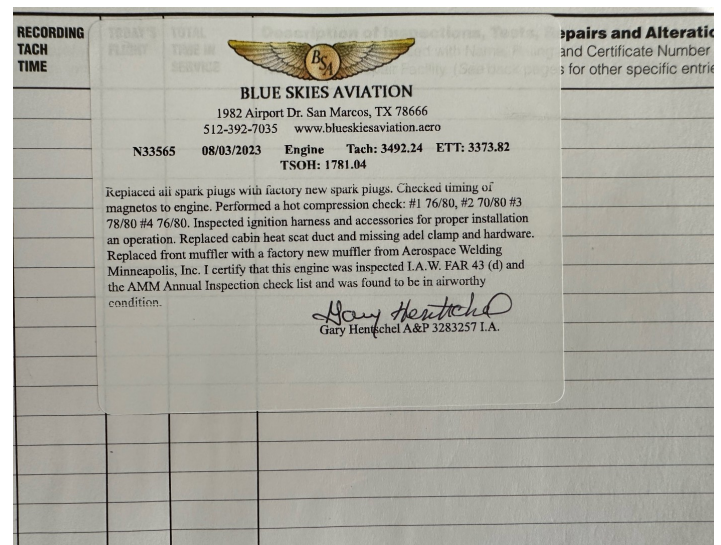 RECORDING
TACH
TIME
TODAY'S
FLIGHT
TOTAL
TIME IN
SERVICE
Description of Inspections, Tests, Repairs and Alteratio
and Certificate Number
s for other specific entrie
BSA
BLUE SKIES AVIATION
1982 Airport Dr. San Marcos, TX 78666
512-392-7035 www.blueskiesaviation.aero
N33565 08/03/2023 Engine Tach: 3492.24 ETT: 3373.82
TSOH: 1781.04
Replaced all spark plugs with factory new spark plugs. Checked timing of
magnetos to engine. Performed a hot compression check: #1 76/80, #2 70/80 #3
78/80 #4 76/80. Inspected ignition harness and accessories for proper installation
an operation. Replaced cabin heat scat duct and missing adel clamp and hardware.
Replaced front muffler with a factory new muffler from Aerospace Welding
Minneapolis, Inc. I certify that this engine was inspected I.A.W. FAR 43 (d) and
the AMM Annual Inspection check list and was found to be in airworthy
condition.
Gary Hentschel
Gary Hentschel A&P 3283257 I.A.